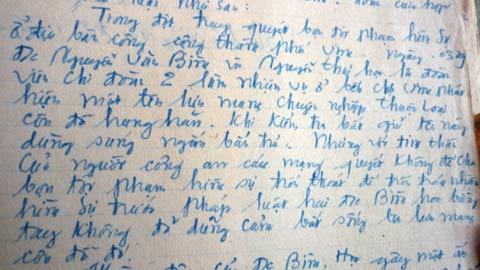 như sau:
Trong đợt truy quét bọn tội phạm hình sự
ở địa bàn công cộng thành phố Vinh ngày
Đc Nguyễn Văn Biên và Nguyễn Thái học là đoàn
viên Chi đoàn 2 làm nhiệm vụ ở bến chợ Vinh phát
hiện một tên lưu manh chuyên nghiệp thuộc loại
côn đồ hung hãn. Khi kiểm tra bắt giữ tên này
dùng súng ngắn bắn trả. Nhưng với tinh thần
Của người công an cách mạng quyết không để cho
bọn tội phạm hình sự trốn thoát
trước pháp luật hai đc Biên học bằng
tay không đã dũng cảm bắt sống tên lưu manh
côn đồ đó.
của Đc Biên, Học